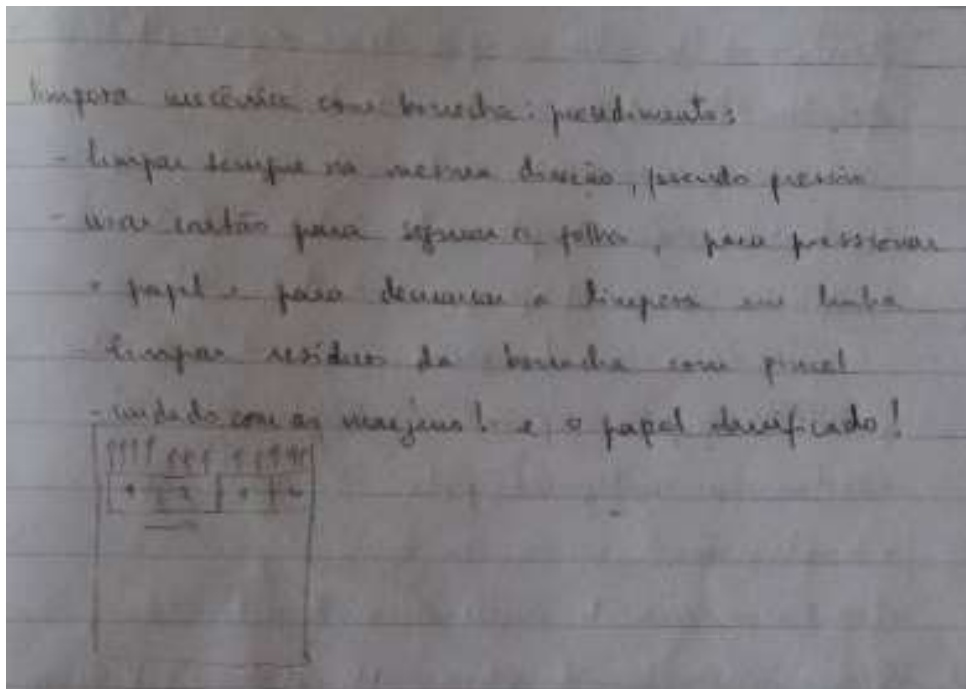 limpeza mecânica com borracha: procedimentos
- limpar sempre na mesma direção, pressão
- usar cartão para segurar a folha, para pressionar
o papel e para demarcar a limpeza em linha
- limpar resíduos da borracha com pincel
- cuidado com as margens! e o papel danificado!